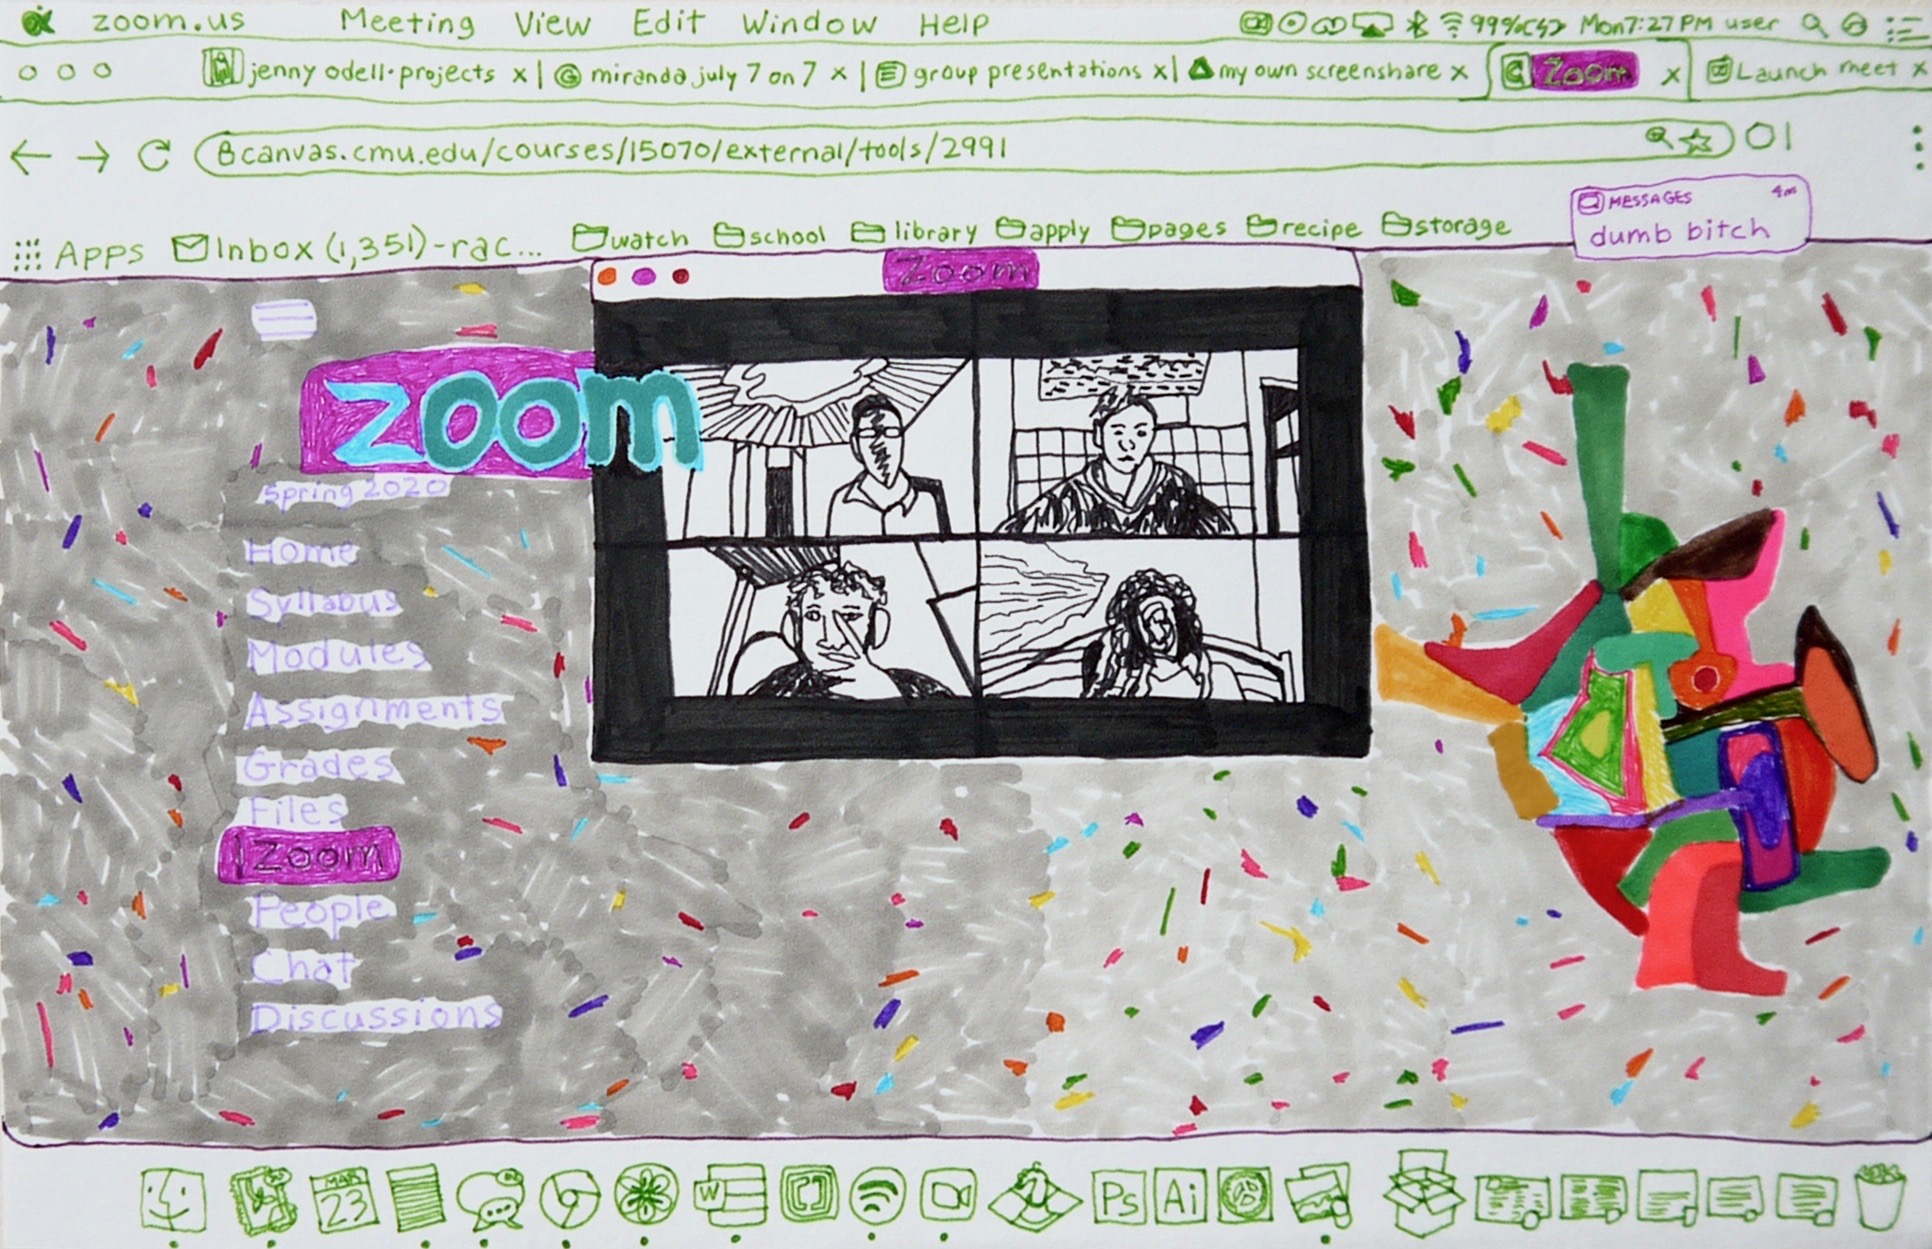 zoom.us Meeting View Edit Window Help 99% Mon 7:27 PM user
jenny odell·projects x | miranda july 7 on 7 x | group presentations x | my own screenshare x Zoom x Launch meet x
canvas.cmu.edu/courses/15070/external/tools/2991
MESSAGES 4m
dumb bitch
Apps Inbox (1,351)-rac... watch school library apply pages recipe storage
Zoom
zoom
Spring 2020
Home
Syllabus
Modules
Assignments
Grades
Files
Zoom
People
Chat
Discussions
MAR
23
W
Ps
Ai